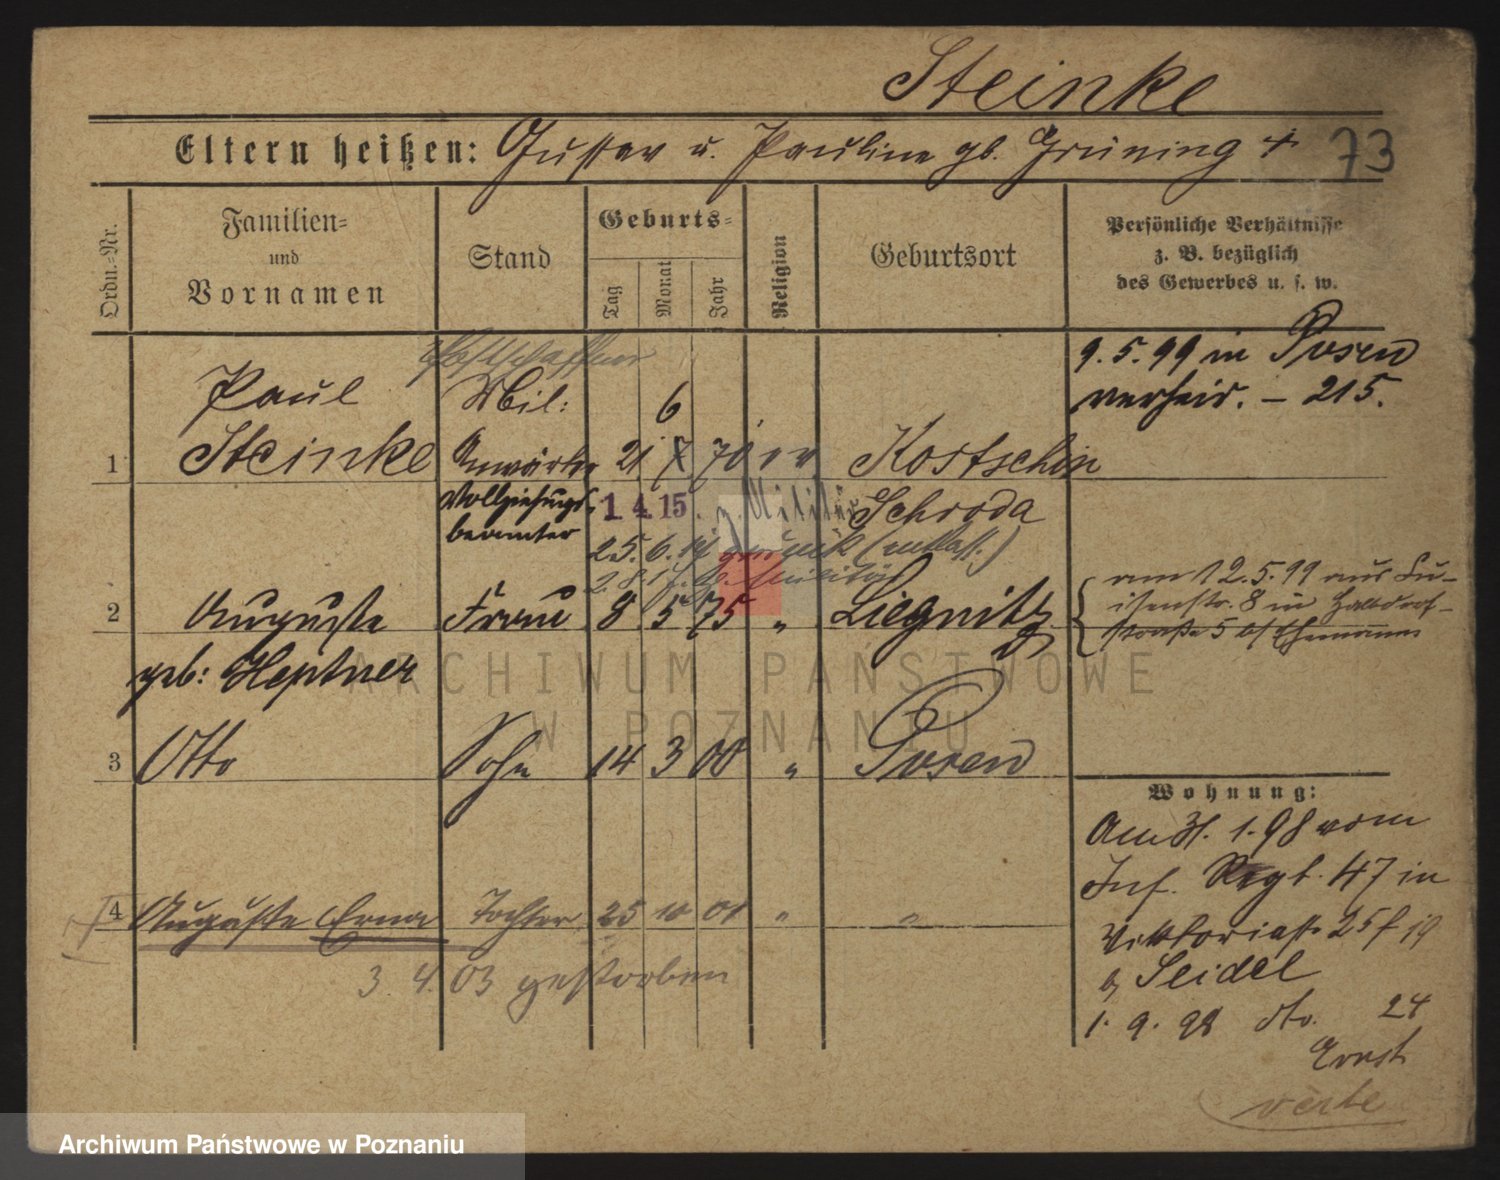 Steinke
Eltern heißen: Gustav u. Pauline gb. Grüning +
73
Ordn.-Nr.
Familien- und Vornamen
Stand
Geburts-
Tag
Monat
Jahr
Religion
Geburtsort
Persönliche Verhältnisse
z. B. bezüglich
des Gewerbes u. s. w.
9. 5. 99 in Posen
verheir. – 215.
Paul Mil: 6
1 Steinke Anwärter 21 7 70 ev Kostschin
Vollziehungs- 1. 4. 15. z. Militär Schroda
beamter
25. 6. zurück (entlass.)
2 Auguste Frau 8 5 75 " Liegnitz
geb: Heptner
am 12. 5. 99 aus Lu-
isenstr. 8 in
straße 5 Ehemann
3 Otto Sohn 14 3 00 " Posen
Wohnung:
Am 31. 1. 98 vom
Inf. Regt. 47 in
Viktoriastr 25 19
b/ Seidel
1. 9. 98 dto. 24
Ernst
4 Auguste Erna Tochter 25 10 01 " "
3. 4. 03 gestorben
ARCHIWUM PAŃSTWOWE
W POZNANIU
Archiwum Państwowe w Poznaniu